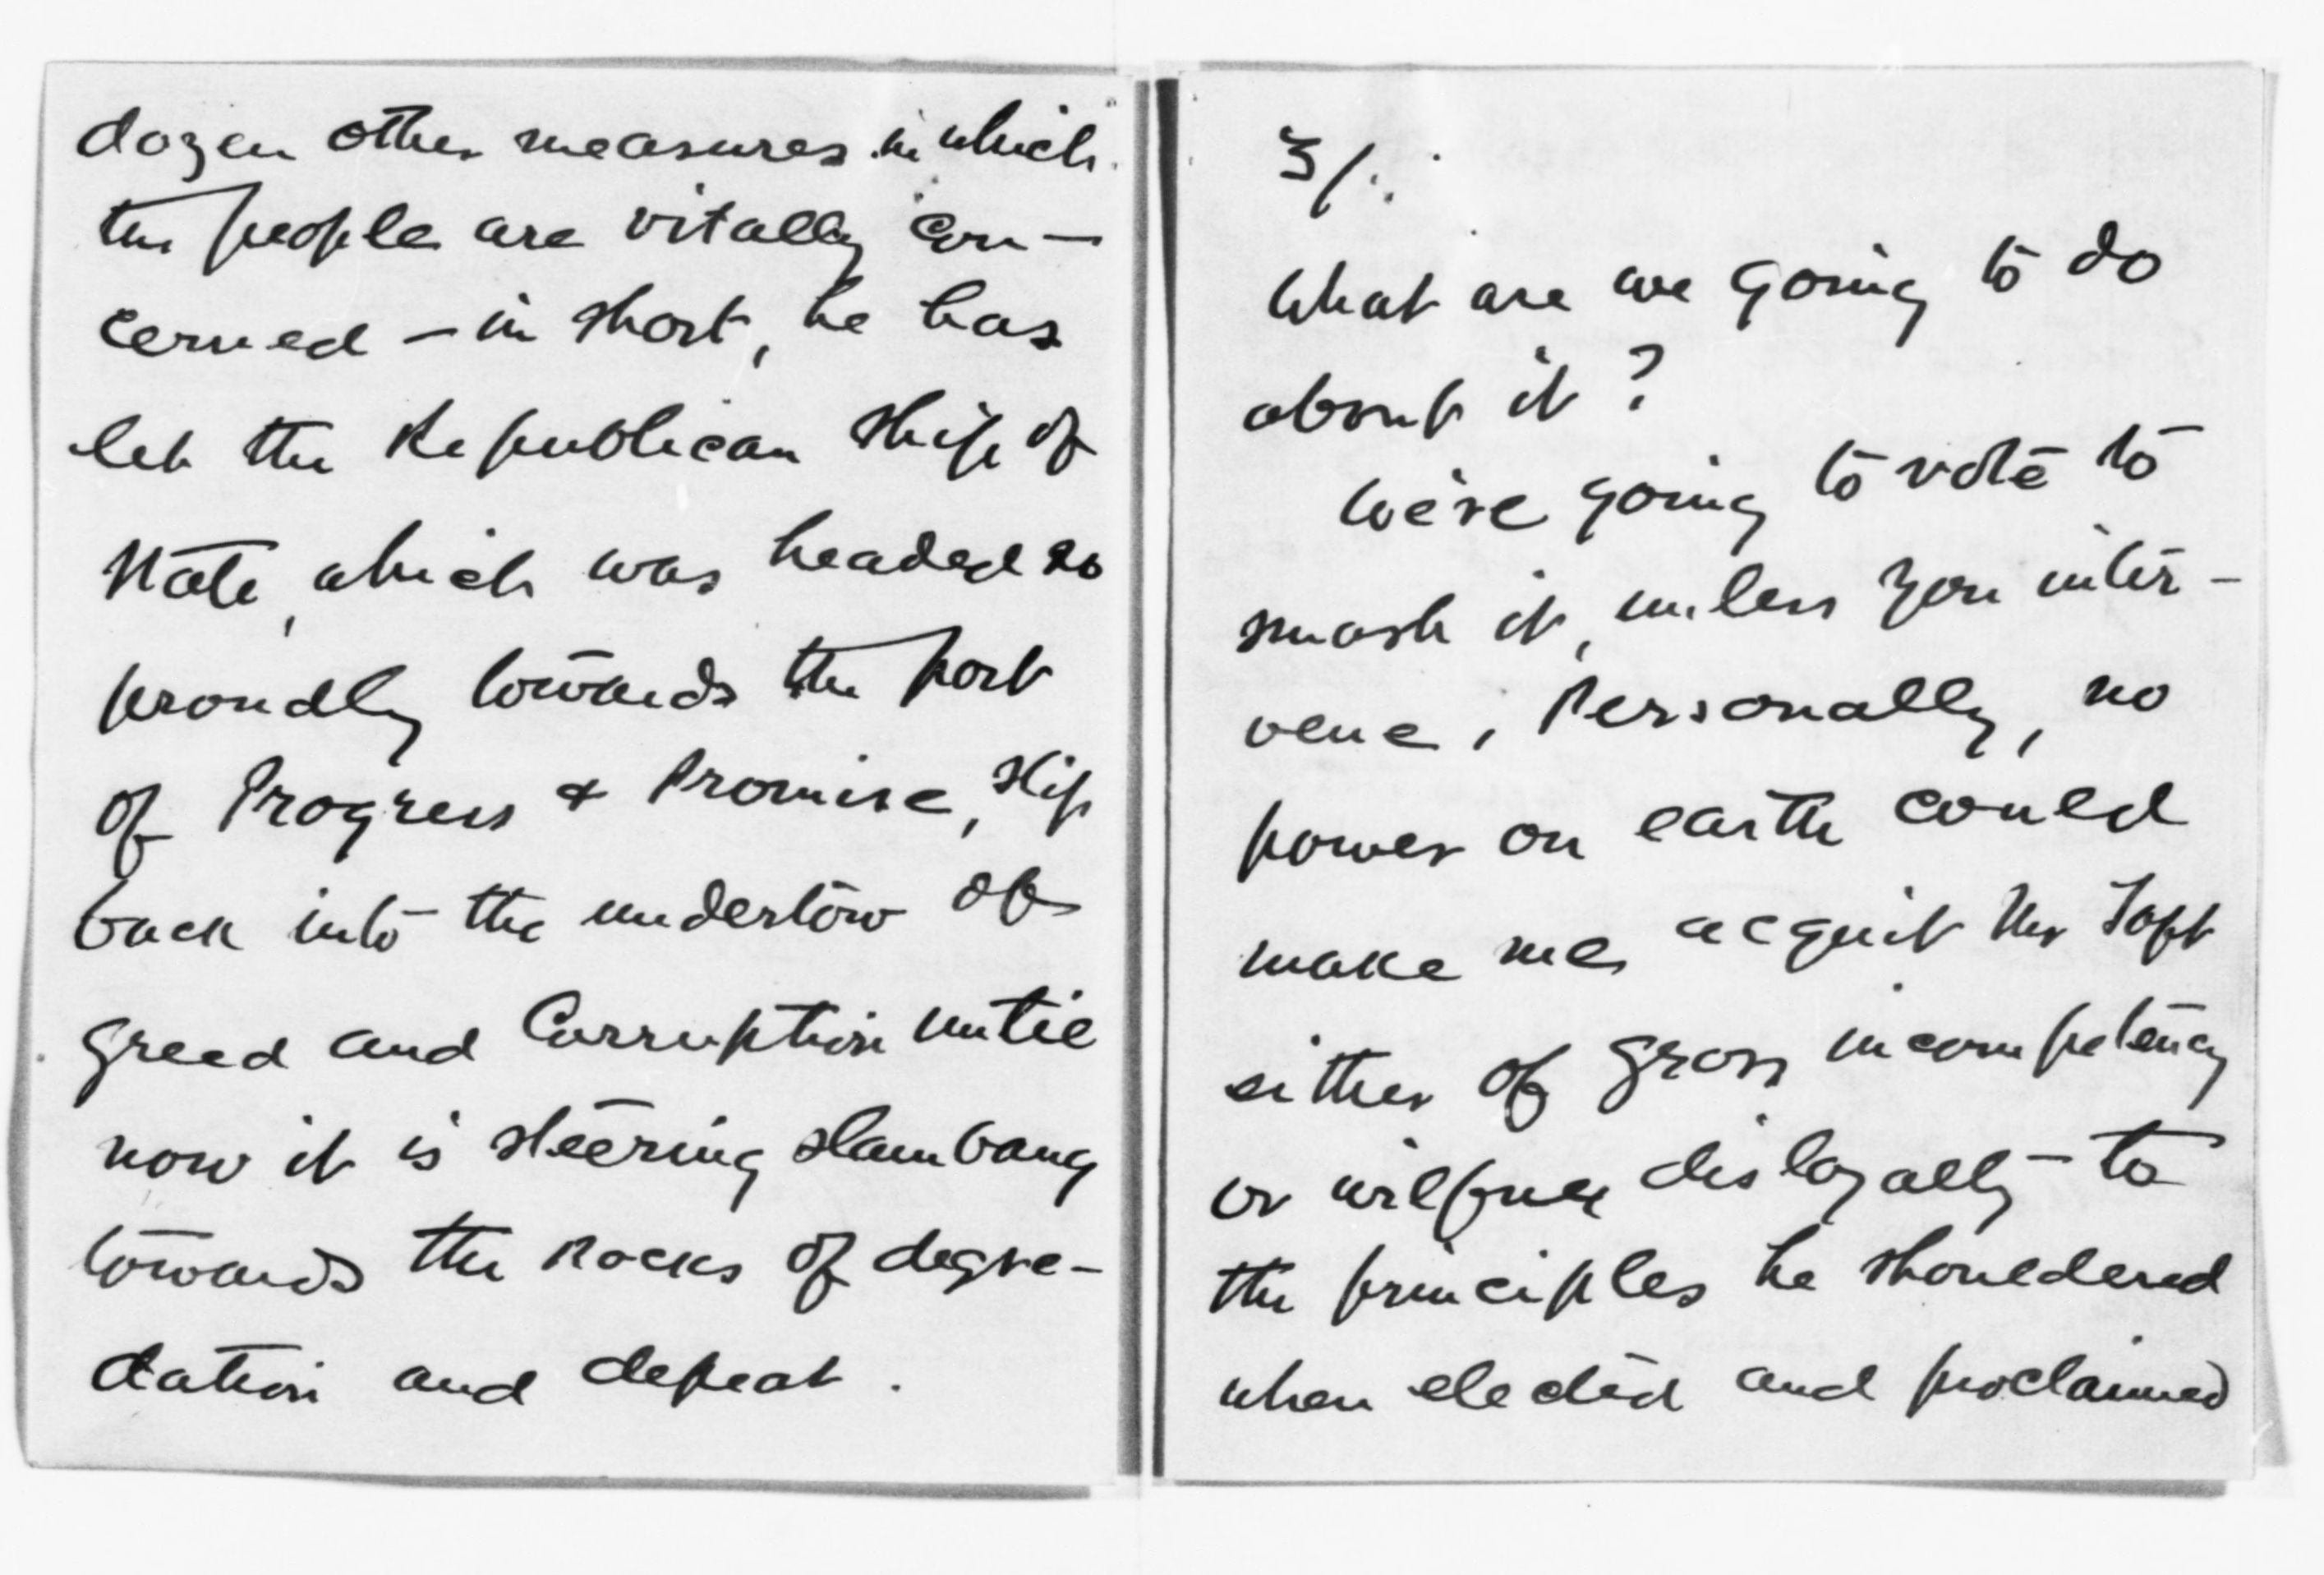 dozen other measures in which
the people are vitally con-
cerned - in short, he has
let the Republican Ship of
State, which was headed so
proudly towards the port
of Progress & Promise, slip
back into the undertow of
greed and Corruption until
now it is steering slambang
towards the Rocks of degre-
dation and defeat.
3/.
What are we going to do
about it?
We're going to vote to
smash it, unless you inter-
vene. Personally, no
power on earth could
make me acquit Mr Taft
either of gross incompetency
or wilful disloyalty to
the principles he shouldered
when elected and proclaimed